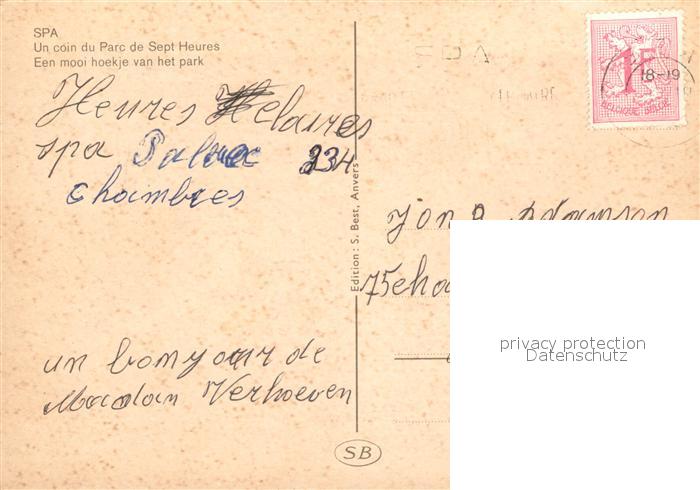 SPA
Un coin du Parc de Sept Heures
Een mooi hoekje van het park
Heures Helaires
spa Palace 234
chambres
un bonjour de
Madan Verhoeven
Edition : S. Best, Anvers
SB
1F
BELGIQUE-BELGIE
18-19
Adamson
privacy protection
Datenschutz